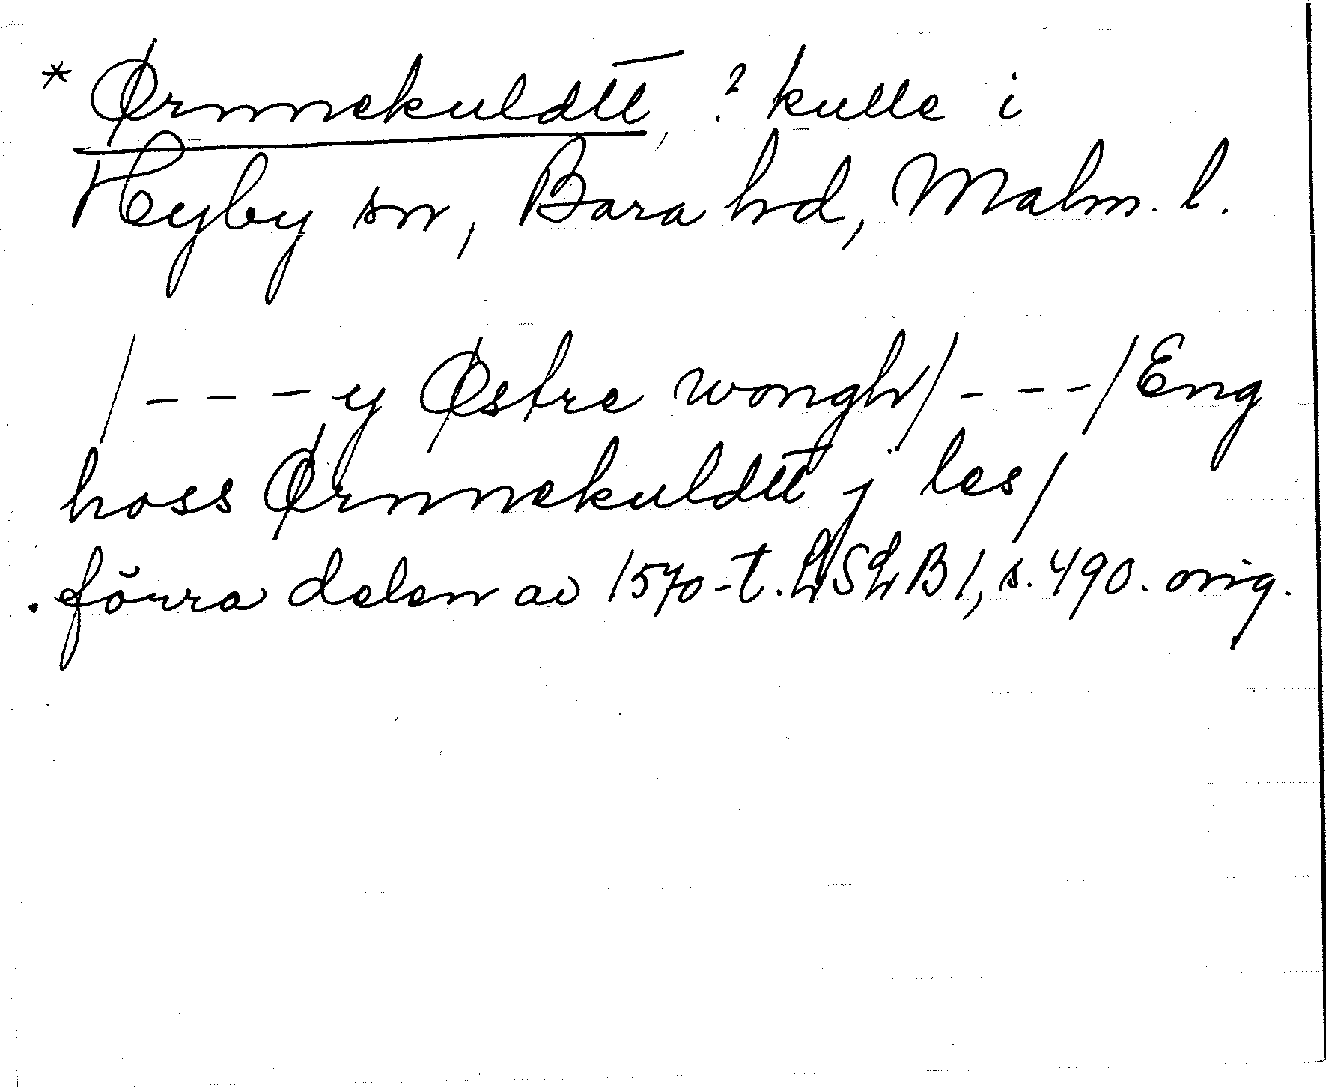 * Ørnnekuldtt, ? kulle i
Hyby sn, Bara hd, Malm. l.
/ - - - y Østre wongh / - - - / Eng
hoss Ørnnekuldtt j les /
förra delen av 1570-t. LSLB1, s. 490. orig.